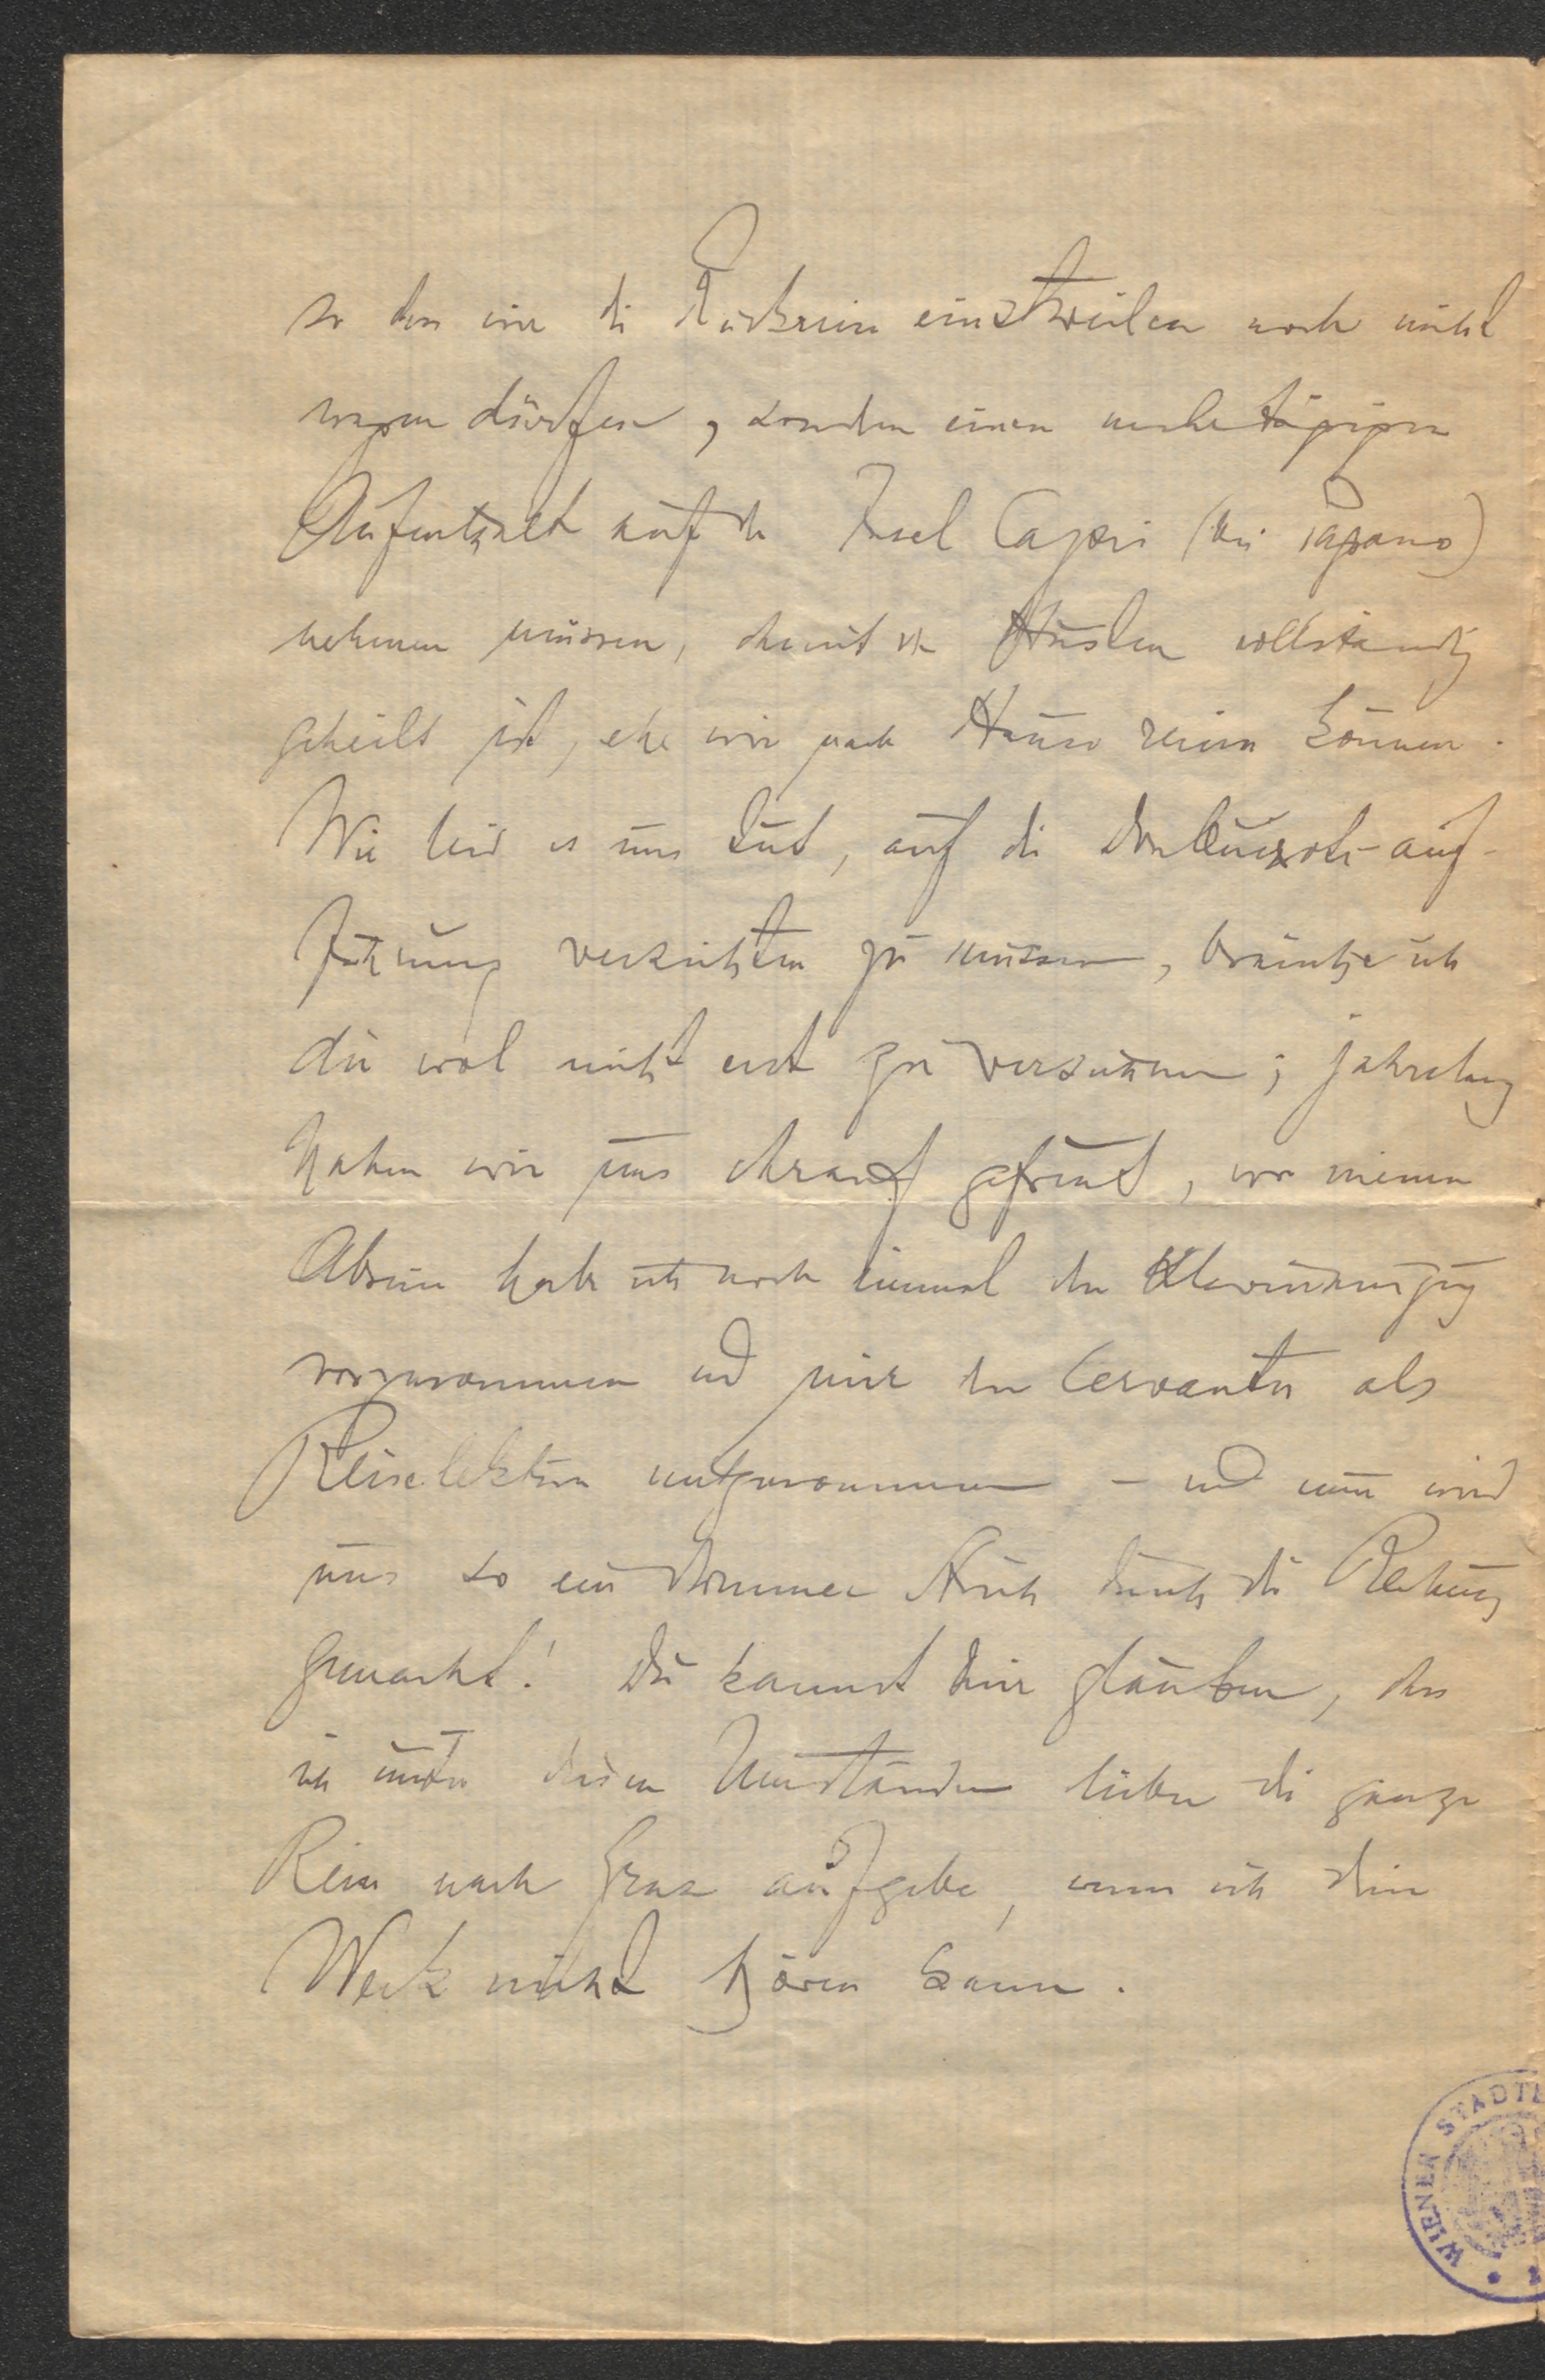 so dass wir die Rückreise einstweilen noch nicht
wagen dürfen, sondern einen mehrtägigen
Aufenthalt auf der Insel Capri (bei Pagano)
nehmen müssen, damit der Husten vollständig
geheilt ist, ehe wir nach Hause reisen können.
Wie leid es uns tut, auf die Don Quixote-auf-
führung verzichten zu müssen, brauche ich
dir wol nicht erst zu versichern; jahrelang
haben wir uns darauf gefreut, vor meiner
Abreise habe ich noch einmal den Klavierauszug
vorgenommen und mir den Cervantes als
Reiselektüre mitgenommen – und nun wird
uns so ein dummer Strich durch die Rechnung
gemacht! Du kannst mir glauben, dass
ich unter diesen Umständen lieber die ganze
Reise nach Graz aufgebe, wenn ich dein
Werk nicht hören kann.
WIENER STADTB